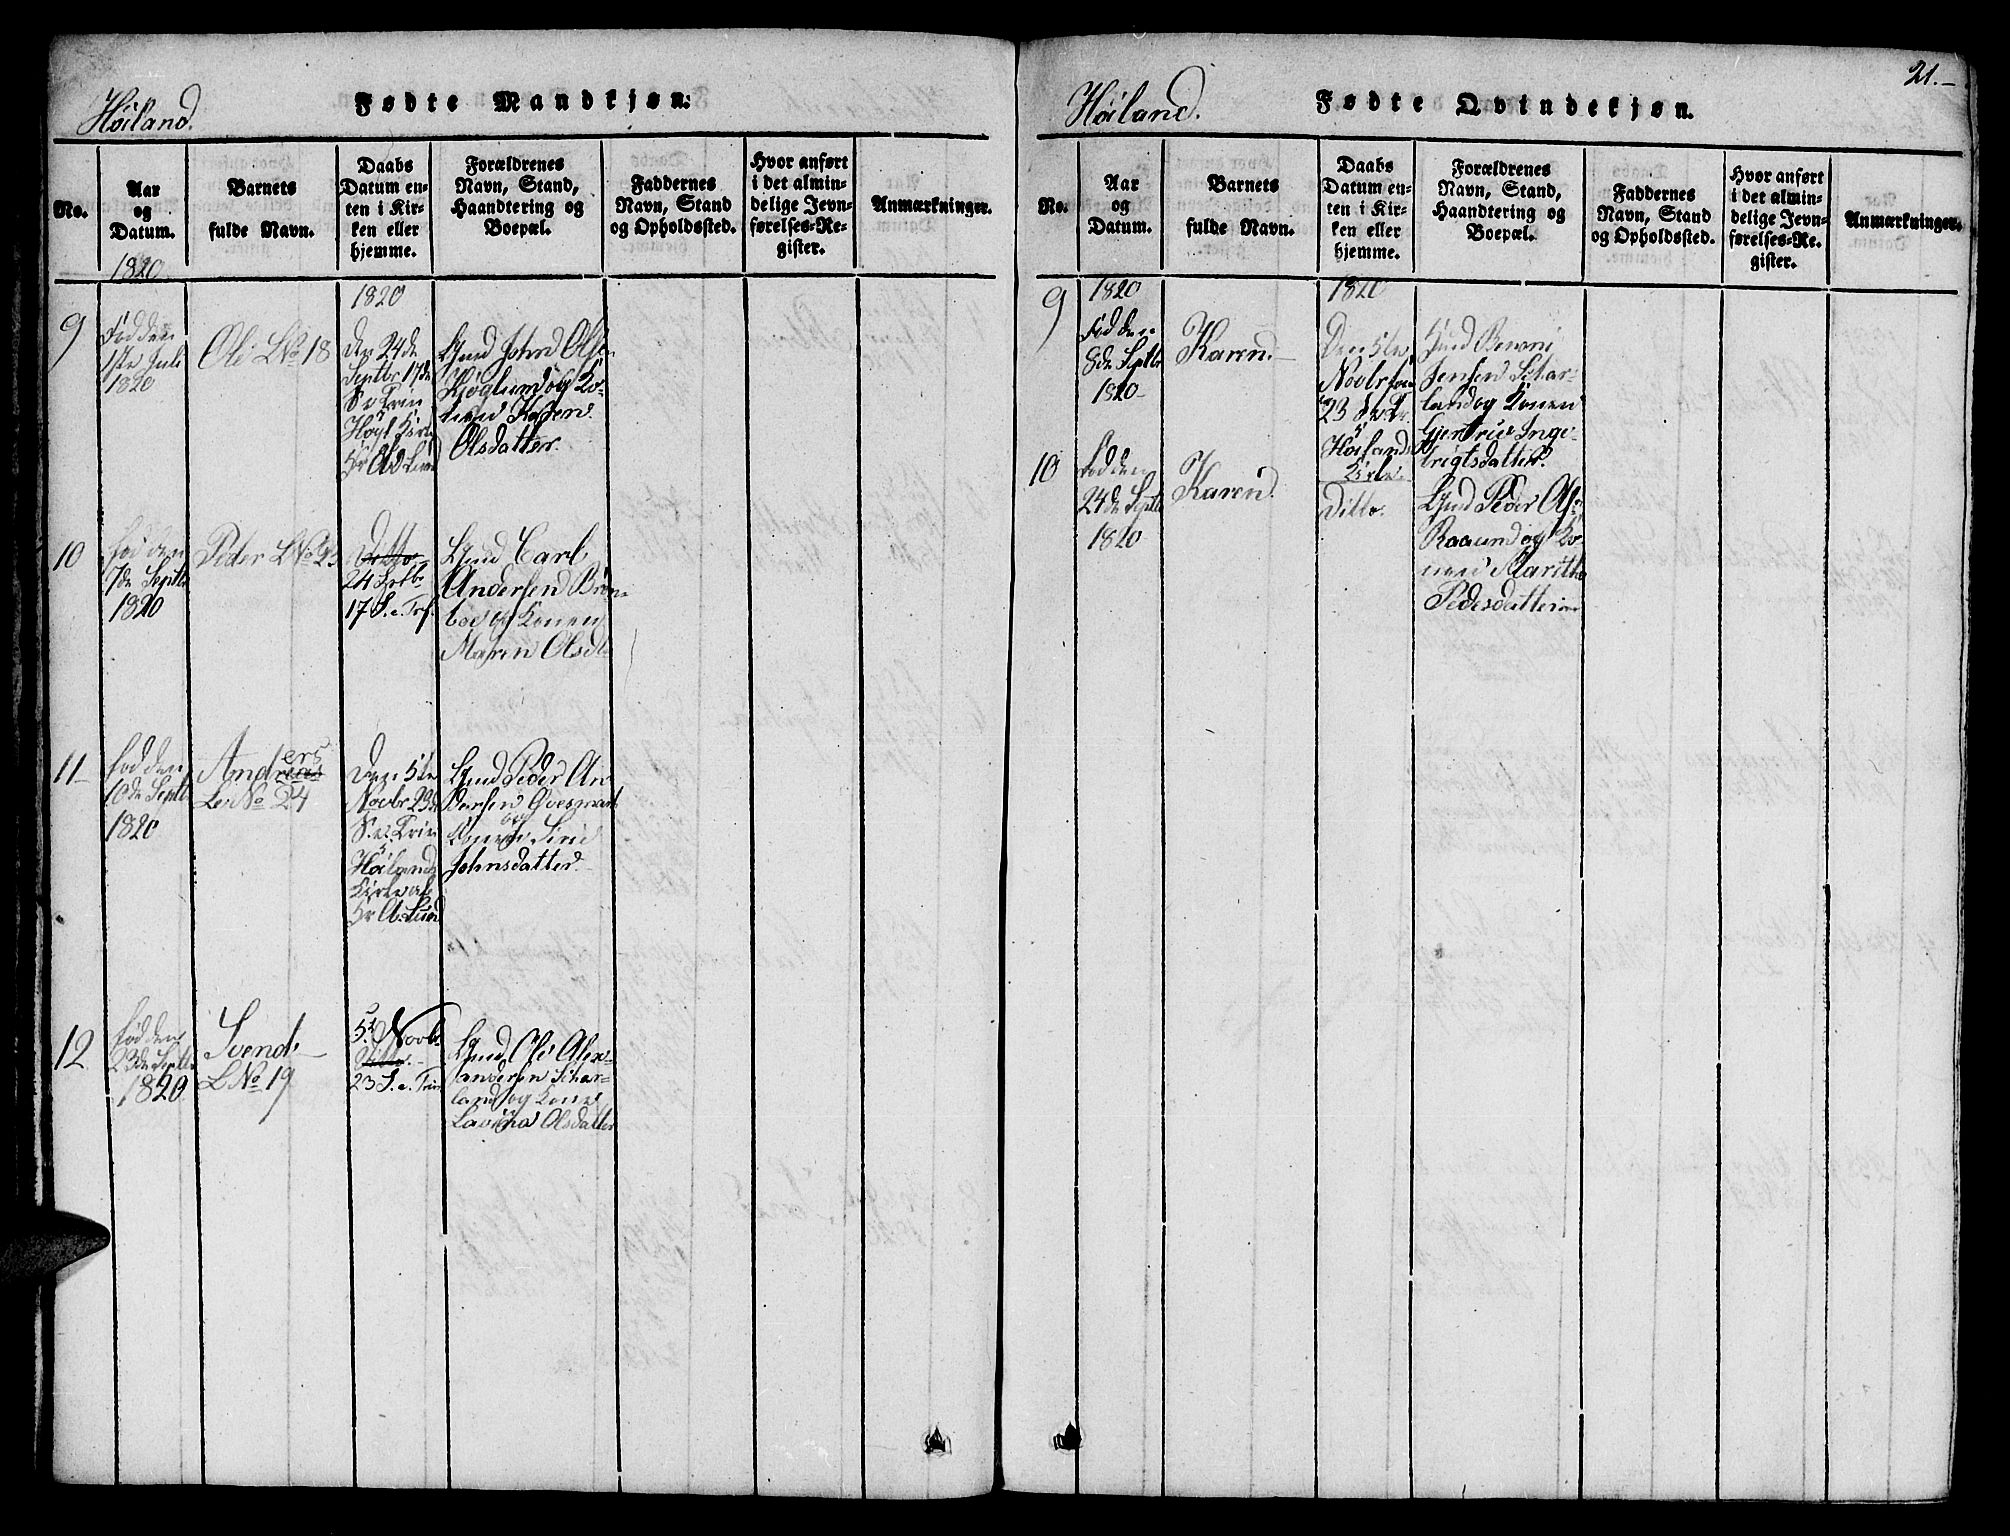 Høiland.
Fødte Mandkjøn.
No.
Aar
og
Datum.
Barnets
fulde Navn.
Daabs
Datum en-
ten i Kir-
ken eller
hjemme.
Forældrenes
Navn, Stand,
Haandtering og
Boepæl.
Faddernes
Navn, Stand
og Opholdssted.
Hvor anført
i det almin-
delige Jevn-
førelses-Re-
gister.
Anmærkninger.
1820
1820
9
Fød den
1ste Juli
1820
Ole L No 18
Den 24de
Septbr 17de
S e Trin
Gmd John Ols.
og Ko-
Karen
Olsdatter.
10
fød den
7de Septbr
1820
Peder L No 23
Ditto
24 Septbr
17 S. e. Trf.
Gmd Carl
Andersen
og Konen
Maren Olsdt
11
fød den
10de Septbr
1820
Andreas
ers
L. No 24
Den 5te
Novbr 23de
S. e. Trin
i
Høilands
Kirke af
Hr A. Lund
Gmd Peder An
dersen
og
Konen Siri
Johnsdatter.
12
fød den
23de Septbr
1820
Svend
L No 19
5t Novbr
Ditto.
23 S. e. Trin
Gmd Ole Alex-
andersen Schar-
land og Kone
Olsdatter
Høiland.
Fødte Qvindekjøn.
21.
No.
Aar
og
Datum.
Barnets
fulde Navn.
Daabs
Datum en-
ten i Kir-
ken eller
hjemme.
Forældrenes
Navn, Stand,
Haandtering og
Boepæl.
Faddernes
Navn, Stand
og Opholdssted.
Hvor anført
i det almin-
delige Jevn-
førelses-Re-
gister.
Anmærkninger.
9
1820
Fød den
8de Septbr
1820
Karen
1820
Den 5te
Novbr
23 S. e. Tr.
i
Høilands
Kirke.
Gmd
Jensen Schar-
land og Konen
Gjertrue Inge-
brigtsdatter.
10
Fød den
24de Septbr
1820
Karen
Ditto.
Gmd Peder Ols
og Ko-
nen Maritha
Pedersdatter